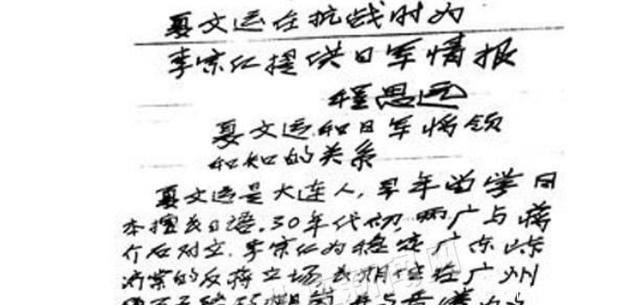 夏文运在抗战时为
李宗仁提供日军情报
程思远
夏文运和日军将领
和知的关系
夏文运是大连人,早年留学日
本擅长日语。30年代初,两广与蒋
介石对立,李宗仁为稳定广东陈
济棠的反蒋立场长期住在广州